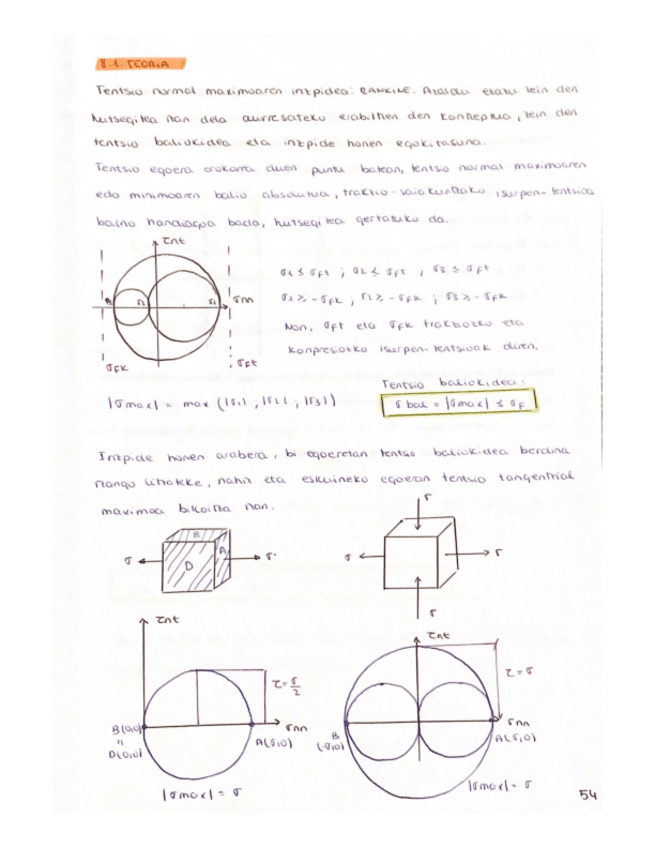 8.1. TEORIA
Tentsio normal maximoaren irizpidea: RANKINE. Azaldu ezazu zein den
hutsegitea nan dela aurresateko erabiltzen den kontzeptua, zein den
tentsio baliokidea eta irizpide honen egokitasuna.
Tentsio egoera orokorra duen puntu batean, tentsio normal maximoaren
edo minimoaren balio absolutua, trakzio-saiakuntzako isurpen-tentsioa
baino handiagoa bada, hutsegitea gertatuko da.
τnt
σ1 ≤ σft ; σ2 ≤ σft ; σ3 ≤ σft
B σ2 σ1 σnn
σ1 ≥ -σfk ; σ2 ≥ -σfk ; σ3 ≥ -σfk
Non, σft eta σfk trakziozko eta
konpresiozko isurpen-tentsioak diren.
σfk σft
Tentsio baliokidea:
|σmax| = max (|σ1| ; |σ2| ; |σ3|)
σbal = |σmax| ≤ σF
Irizpide honen arabera, bi egoeretan tentsio baliokidea berdina
izango litzateke, nahiz eta eskuineko egoeran tentsio tangentzial
maximoa bikoitza izan.
σ B D A σ
σ σ σ σ
τnt
τ = σ/2
B(0,0)
"
D(0,0)
A(σ,0)
σnn
|σmax| = σ
τnt
τ = σ
B
(-σ,0)
σnn
A(σ,0)
|σmax| = σ
54